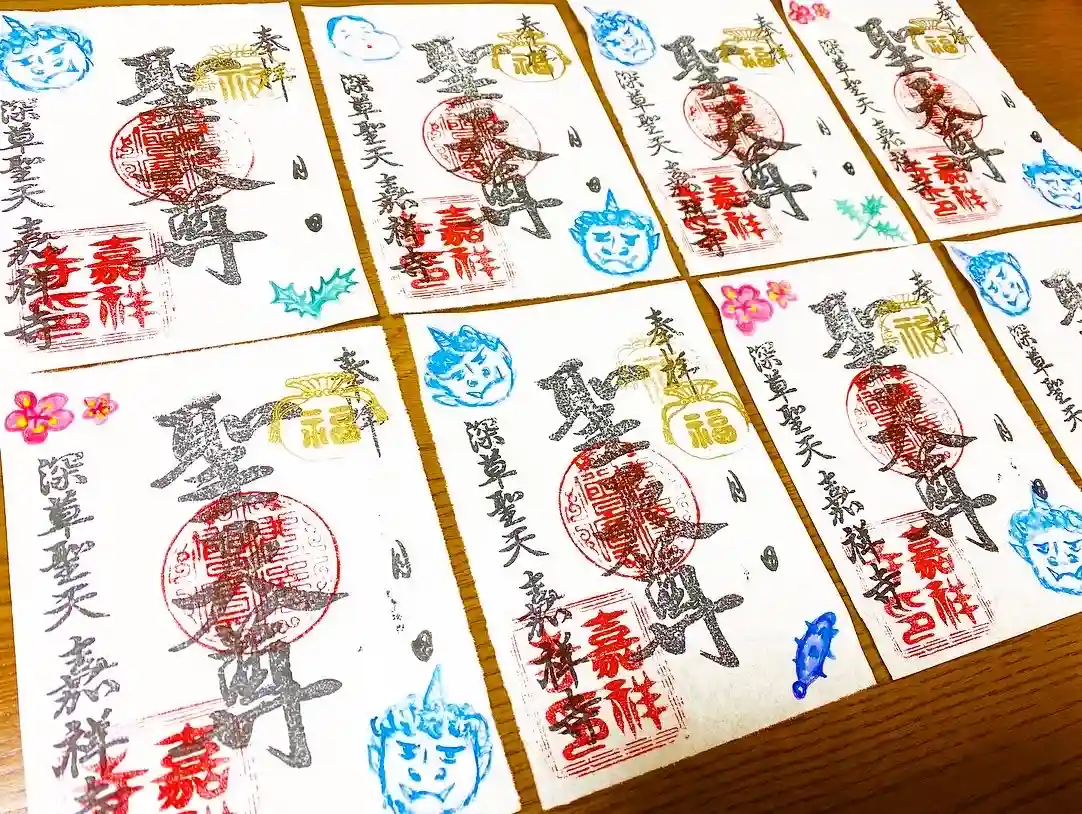 奉祥
福
月 日
聖天尊
深草聖天 嘉祥寺
嘉祥寺印
奉祥
福
月 日
聖天尊
深草聖天 嘉祥寺
嘉祥寺印
奉祥
福
月 日
聖天尊
深草聖天 嘉祥寺
嘉祥寺印
奉祥
福
月 日
聖天尊
深草聖天 嘉祥寺
嘉祥寺印
奉祥
福
月 日
聖天尊
深草聖天 嘉祥寺
嘉祥
奉祥
福
月 日
聖天尊
深草聖天 嘉祥寺
嘉祥寺印
奉祥
福
月 日
聖天尊
深草聖天 嘉祥寺
嘉祥寺印
深草聖天